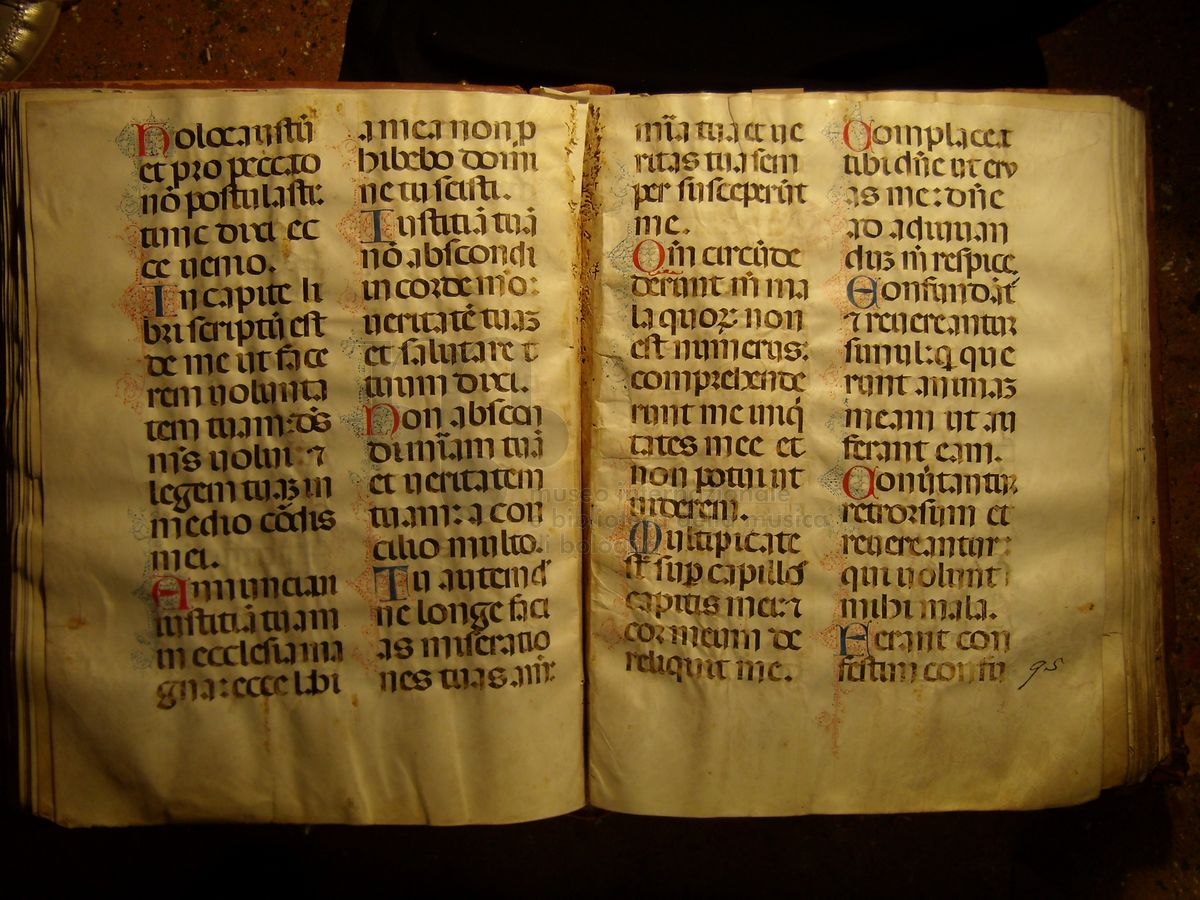 holocaustū
et pro peccato
nō postulasti:
tunc dixi ec
ce uenio.
In capite li
bri scriptū est
de me ut face
rem uolunta
tem tuam: dẽs
m̄s uolui ⁊
legem tuaʒ in
medio cōrdis
mei.
Annunciaui
iustitiā tuam
in ecclesia ma
gna: ecce labi
a mea non p
hibebo domi
ne tu scisti.
Iustitiā tuā
nō abscondi
in corde meo:
ueritatē tuaʒ
et salutare t
tuum dixi.
Non abscon
di mīam tuā
et ueritatem
tuam: a con
cilio multo.
Tu autem d
ne longe faci
as miseratio
nes tuas a m:
mīa tua et ue
ritas tua sem
per susceperūt
me.
Qm̄ circūde
derunt m̄ ma
la quoꝝ non
est numerus:
comprehende
runt me iniq̄
tates mee et
non potui ut
uiderem.
Multiplicate
st̄ sup capillos
capitis mei: ⁊
cor meum de
reliquit me.
Complaceat
tibi dn̄e ut eru
as me: dn̄e
ad adiuuan
duʒ m̄ respice.
Confundāt̄
⁊ reuereantur
simul: q̄ que
runt animaʒ
meam ut au
ferant eam.
Conuertantur
retrorsum et
reuereantur:
qui uolunt
mihi mala.
Ferant con
festim confu
95
museo internazionale
e biblioteca della musica
di bologna